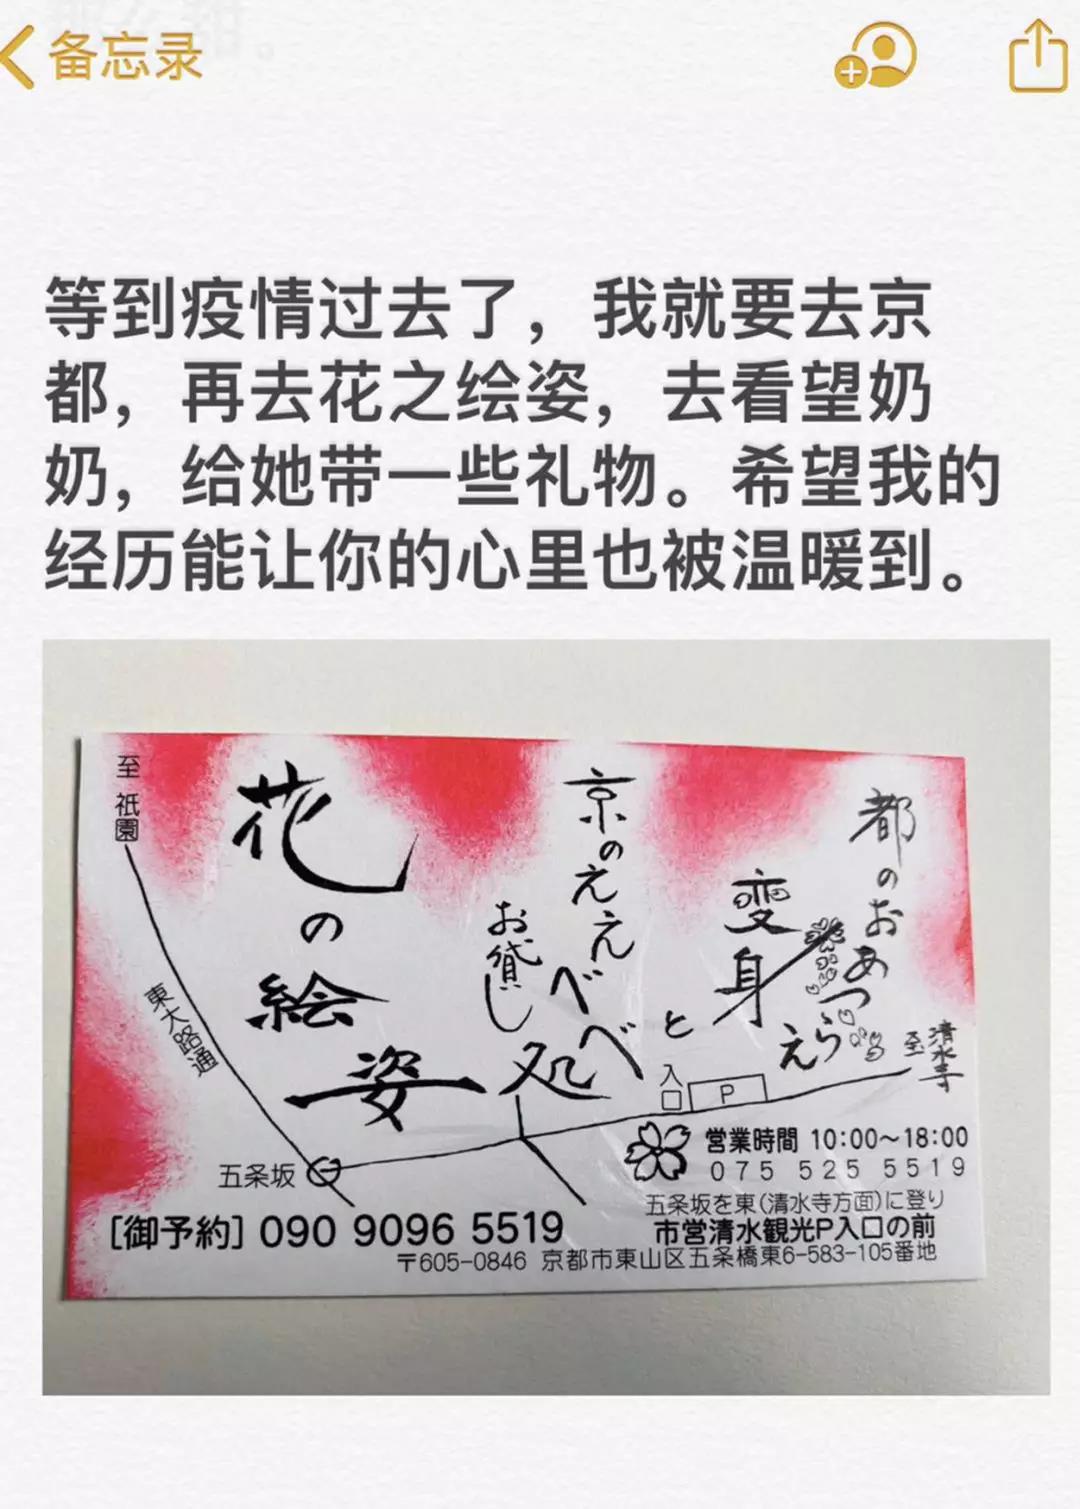 备忘录
等到疫情过去了，我就要去京
都，再去花之绘姿，去看望奶
奶，给她带一些礼物。希望我的
经历能让你的心里也被温暖到。
至祇園
花の絵姿
京のええべべ
お貸し処
と
変身
都のおあつらえ
東大路通
至清水寺
入口
P
五条坂
営業時間 10:00～18:00
075 525 5519
五条坂を東(清水寺方面)に登り
[御予約] 090 9096 5519
市営清水観光P入口の前
〒605-0846 京都市東山区五条橋東6-583-105番地